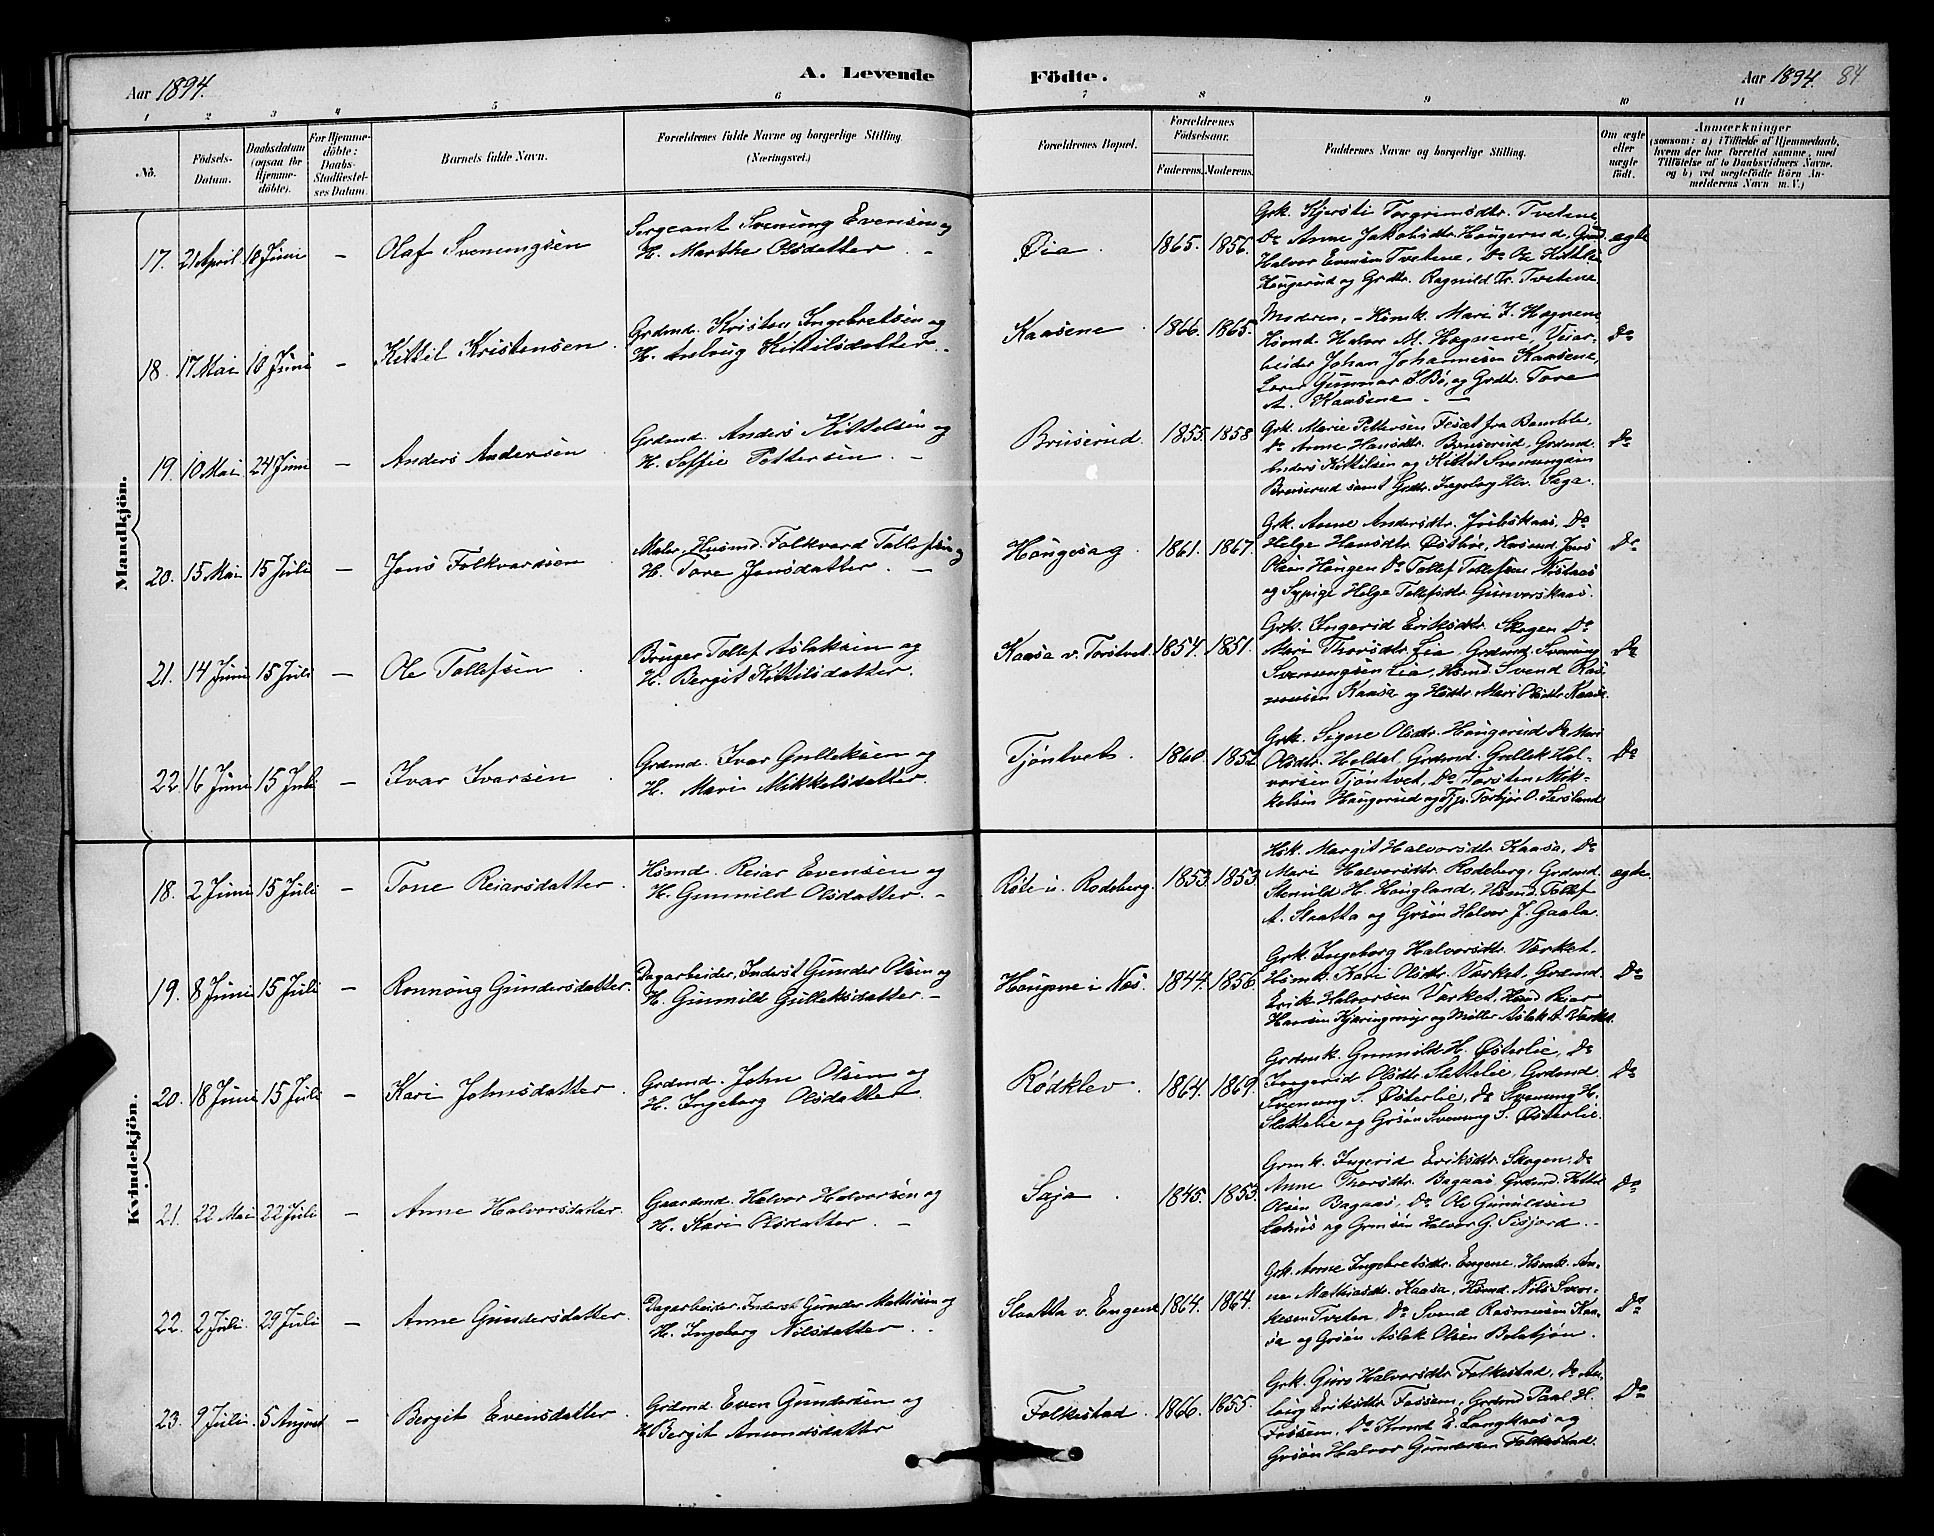 Aar 1894.
A. Levende
Födte.
Aar 1894. 84
1 2 3 4 5 6 7 8 9 10 11
No.
Födsels-Datum.
Daabsdatum (ogsaa for Hjemme-döbte).
For Hjemme-döbte: Daabs-Stadfæstelses Datum.
Barnets fulde Navn.
Forældrenes fulde Navne og borgerlige Stilling (Næringsvei.)
Forældrenes Bopæl.
Forældrenes Födselsaar.
Faderens. Moderens.
Faddernes Navne og borgerlige Stilling.
Om ægte eller uægte födt.
Anmærkninger
(saasom: a) i Tilfælde af Hjemmedaab, hvem der har forrettet samme, med Tilföielse af to Daabsvidners Navne, og b) ved uægtefödte Börn Anmelderens Navn m. V.)
Mandkjön.
17. 21 April 10 Juni – Olaf Svenungsen
Sergeant Svenung Evensen og
H. Marthe Olsdatter. –
Øia. 1865. 1856.
Grk. Kjersti Torgrimsdtr. Tvetene,
Do Anne Jakobsdtr. Haugerud, Grmd
Halvor Evensen Tvetene, Do Ole Kittilsen
Haugerud og Grdtr. Ragnild Tr. Tvetene.
ægte
18. 17 Mai 10 Juni – Kittil Kristensen.
Grdmd. Kristen Ingebretsen og
H. Aslaug Kittilsdatter. –
Kaasene. 1866. 1865.
Moderen, – Hsmk. Mari J. Hagnene,
Hsmd. Halvor M. Hagnene, Veiar-
beider Johan Johannesen Kaasene,
Lærer Gunnar K. Bö, og Grdtr. Tore
A. Kaasene. –
Do
19. 10 Mai 24 Juni – Anders Andersen.
Grdmd. Anders Kittelsen og
H. Soffie Pettersen. –
Bruserud. 1855. 1858
Grk. Marie Pettersen Feset fra Bamble,
Do Anne Hansdtr. Bruserud, Grdmd.
Anders Kittilsen og Kittil Svenungsen
Bruserud samt Grdtr. Ingeborg Hlv. Saga.
Do
20. 15 Mai 15 Juli – Jons Folkvarsen
Maler, Husmd. Folkvard Tollefsen og
H. Tore Jonsdatter. –
Haugesag. 1861. 1867.
Grk. Anne Andersdtr. Joibskaas, Do
Helge Hansdtr. Østbø, Husmd. Jons
Olsen Haugen Do Tollef Tollefsen
og Sypige Helge Tollefsdtr. Gunverskaas.
Do
21. 14 Juni 15 Juli – Ole Tollefsen.
Bruger Tollef Aslaksen og
H. Bergit Kittilsdatter.
Kaasa v. Torstvet. 1854. 1851.
Grk. Ingerid Eriksdtr. Skogen Do
Mari Thorsdtr. Lia, Grdmd. Svenung
Svenungsen Lia, Hsmd. Svend Ras-
mussen Kaasa og Hsdtr. Mari Olsdtr. Kaasa
Do
22. 16 Juni 15 Juli – Ivar Ivarsen.
Grdmd. Ivar Gulleksen og
H. Mari Mikkelsdatter.
Tjøntvet. 1860. 1852
Grk. Signe Olsdtr. Haugerud Do Mari
Olsdtr. Heldal, Grdmd. Gullek Hal-
vorsen Tjöntvet, Do Torsten Mik-
kelsen Haugerud og Tjp. Torbjør O. Sersland.
Do
Kvindekjön.
18. 2 Juni 15 Juli – Tone Reiarsdatter.
Hsmd. Reiar Evensen og
H. Gunnild Olsdatter. –
Røte u. Rodeberg. 1853. 1853.
Hsk. Margit Halvorsdtr. Kaasa, Do
Mari Halvorsdtr. Rodeberg, Grdmd.
Stenulf H. Haugland, Hsmd. Tollef
A. Slaatta og Grsön Halvor J. Gaala.
ægte.
19. 8 Juni 15 Juli – Ronnaug Gundersdatter.
Dagarbeider, Inderst Gunder Olsen og
H. Gunnild Gulleksdatter. –
Haugene i Næs. 1844. 1856.
Grk. Ingeborg Halvorsdtr. Varket,
Hsmk. Kari Olsdtr. Varket, Grdmd.
Erik Halvorsen Varket, Hsmd Reiar
Hansen Kjæringmyr og Møller Aslak A. Varket.
Do
20. 18 Juni 15 Juli – Kari Johnsdatter.
Grdmd. John Olsen og
H. Ingeborg Olsdatter.
Rödklev. 1864. 1869.
Grdmk. Gunnild H. Østerlie, Do
Ingerid Olsdtr. Slettelie, Grdmd.
Svenung S. Østerlie, Do Svenung H.
Slettelie og Grsön Svenung S. Østerlie.
Do
21. 22 Mai 22 Juli – Anne Halvorsdatter.
Gaardmd. Halvor Halvorsen og
H. Kari Olsdatter. –
Saga. 1845. 1853.
Grmk. Ingerid Eriksdtr. Skogen, Do
Anne Thorsdtr. Bagaas Grdmd. Kittil
Olsen Bagaas, Do Ole Gunuldsen
og Grmsön Halvor G. Sisjord. –
Do
22. 2 Juli. 29 Juli – Anne Gundersdatter.
Dagarbeider, Inderst Gunder Mathisen og
H. Ingeborg Nilsdatter. –
Slaatta v. Engene 1864. 1864.
Grk. Anne Ingebretsdtr. Engene, Hsmk. An-
ne Mathisdtr. Kaasa, Hsmd. Nils Svor-
kesen Tveten, Do Svend Rasmussen Kaa-
sa og Grsön Aslak Olsen Bolstjøn.
Do
23. 9 Juli. 5 August – Bergit Evensdatter.
Grdmd. Even Gundersen og
H. Bergit Amundsdatter
Folkestad. 1866. 1855.
Grk. Guro Halvorsdtr. Folkestad, Do As-
laug Eriksdtr. Fossem, Grdmd Paal H.
Fossem, Do Knud E. Langkaas og
Grsön Halvor Gundersen Folkestad.
Do